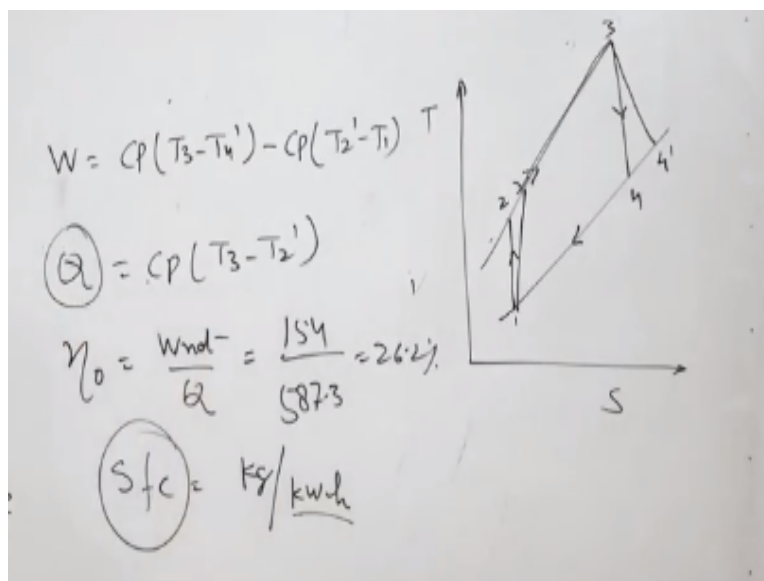 W = CP(T3-T4')-CP(T2'-T1)
Q = CP(T3-T2')
η0 = Wnet/Q = 154/587.3 = 26.2%
Sfc = kg/kwh
T
3
2
2'
4
4'
1
S